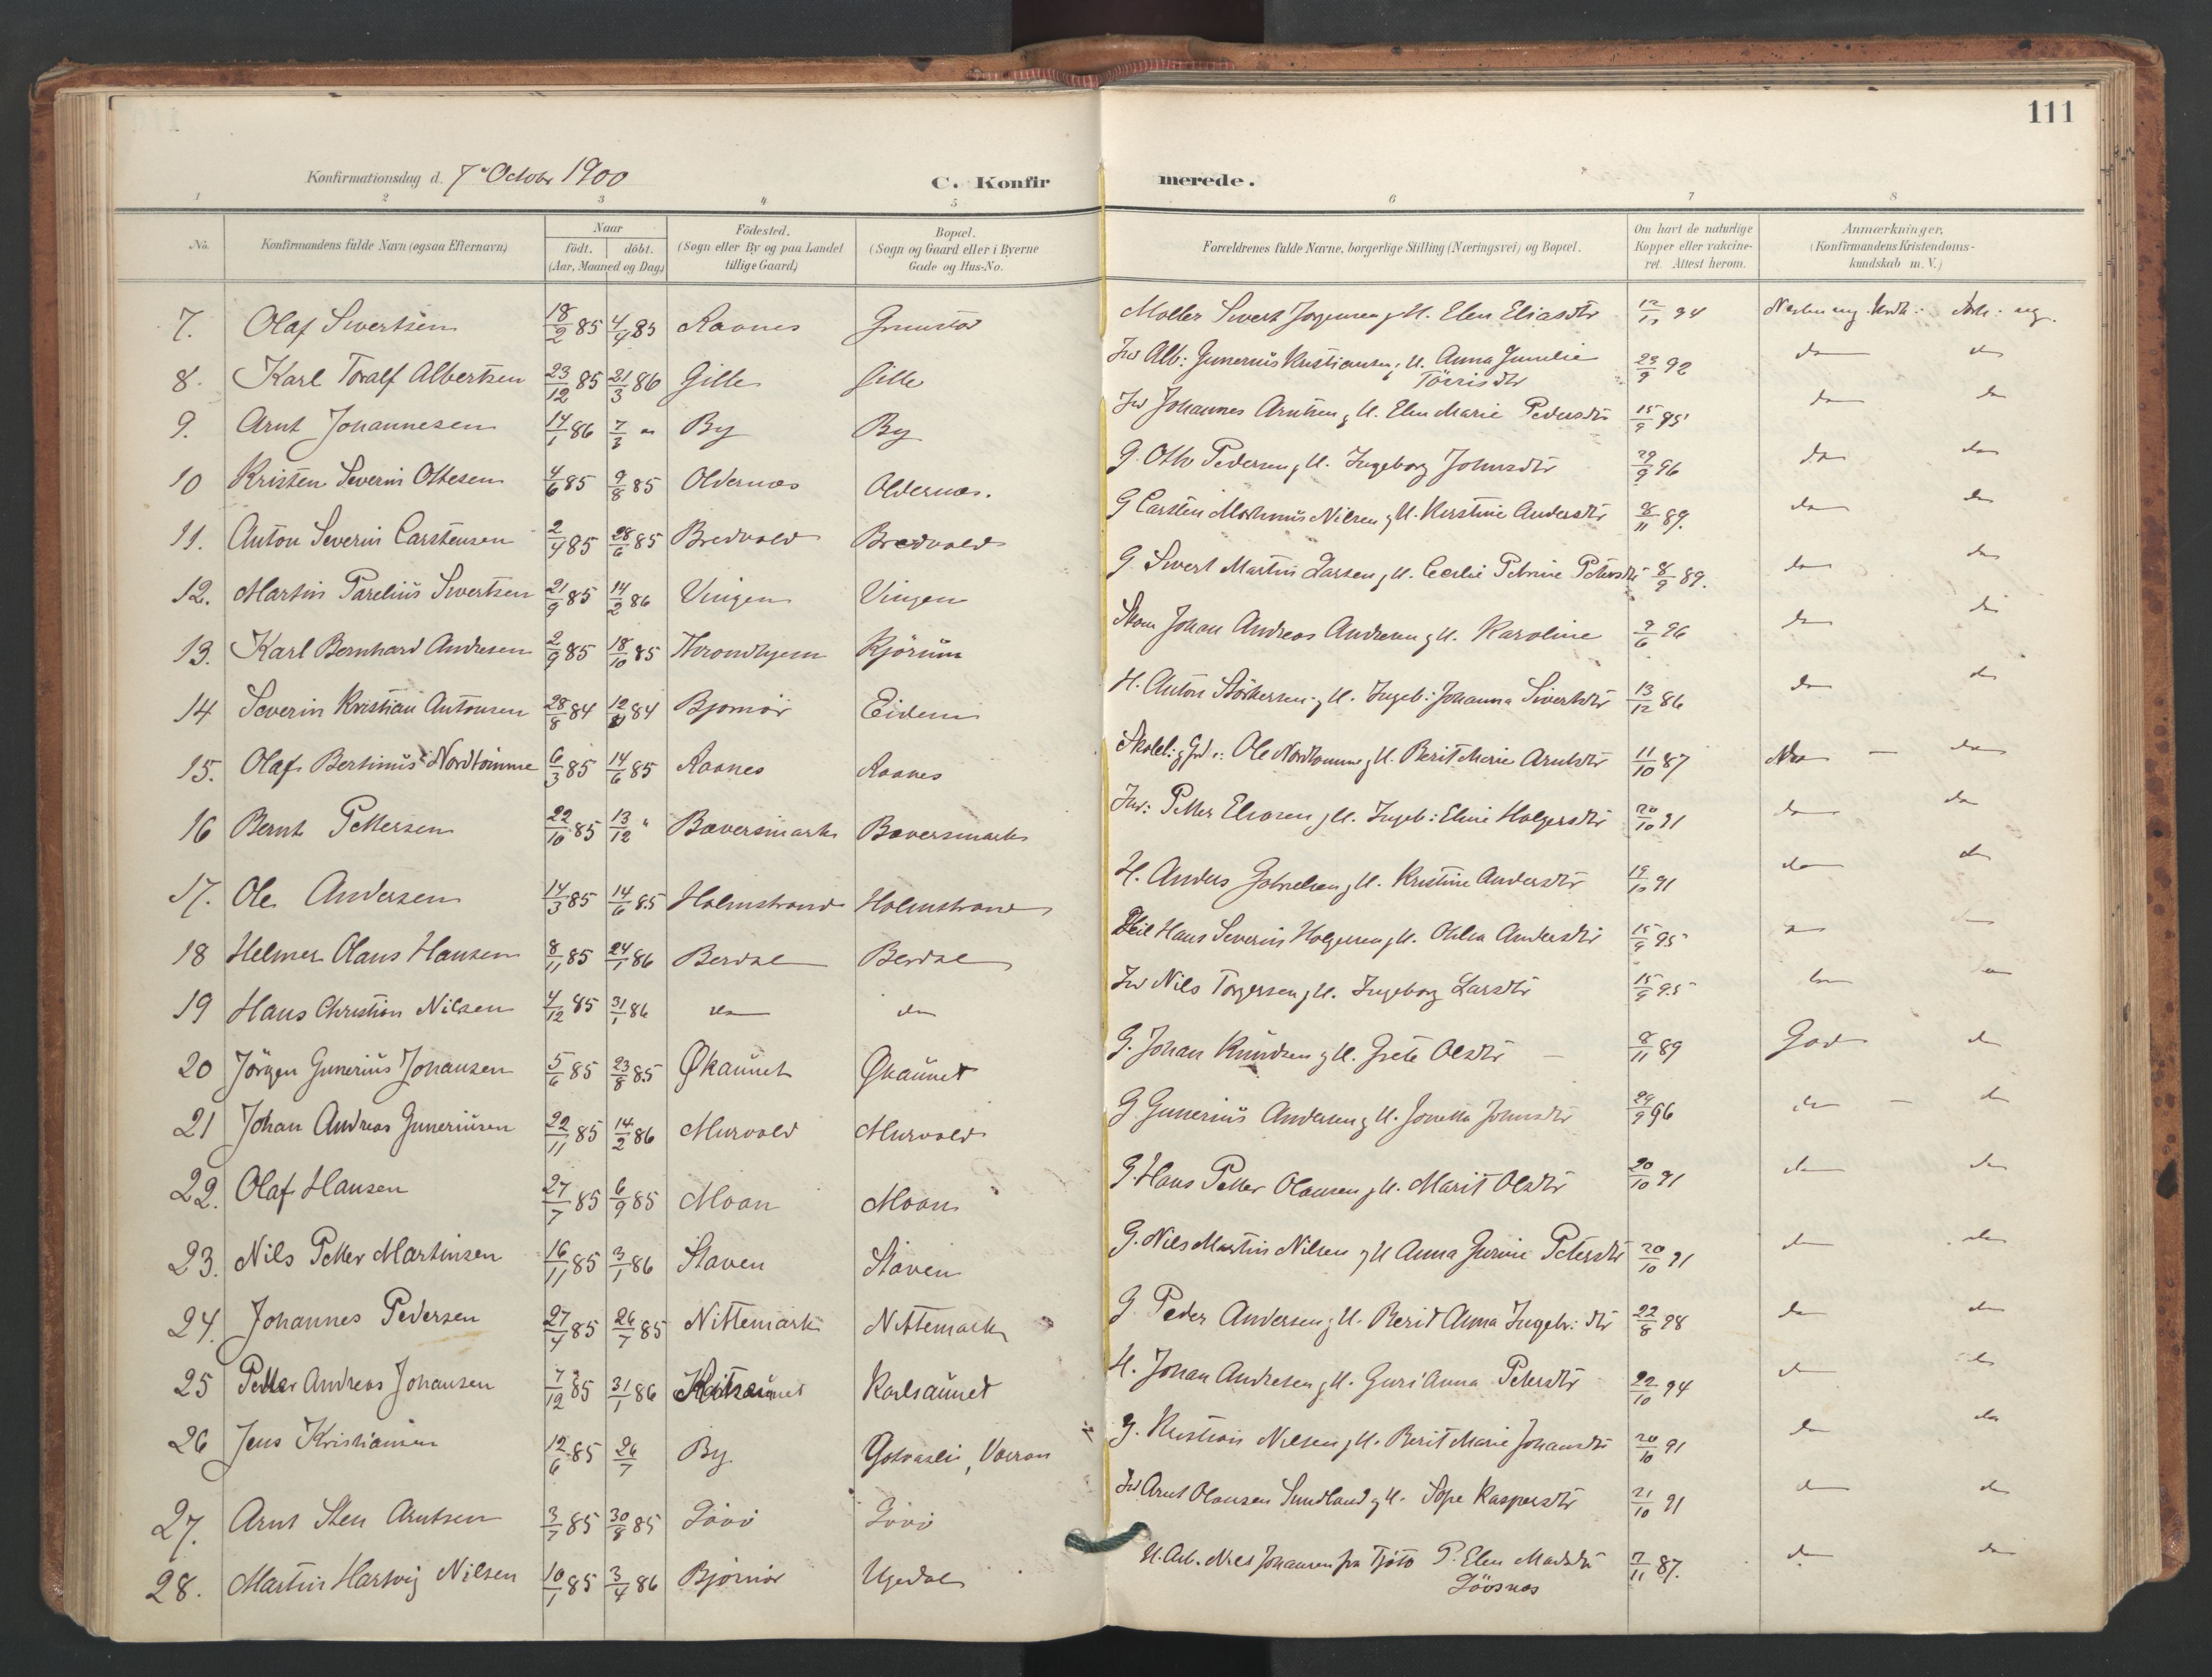 111
Konfirmationsdag d. 7 Octobr 1900
C. Konfirmerede.
1 2 3 4 5 6 7 8
No. Konfirmandens fulde Navn (ogsaa Efternavn) Naar födt. döbt. (Aar, Maaned og Dag.) Födested. (Sogn eller By og paa Landet tillige Gaard) Bopæl. (Sogn og Gaard eller i Byerne Gade og Hus-No. Forældrenes fulde Navne, borgerlige Stilling (Næringsvei) og Bopæl. Om havt de naturlige Kopper eller vakcineret. Attest herom. Anmærkninger. (Konfirmandens Kristendomskundskab m. V.)
7. Olaf Sivertsen 18/2 85 4/4 85 Raanes Møller Sivert Jørgensen, H. Elen Eliasdtr 94
8. Karl Toralf Albertsen 23/12 85 21/3 86 Gille Gille Alb: Gunerius Kristiansen, H. Anna Tørrisdtr 23/9 92 do do
9. Arnt Johannesen 14/1 86 7/3 " By By Johannes Arntsen, H. Elen Marie Pedersdtr 15/9 95 do do
10 Kristen Severin Ottesen 4/6 85 9/8 85 Oldernæs Oldernæs. G. Otto Pedersen, H. Ingeborg Johnsdtr 29/9 96 do do
11. Anton Severin Carstensen 2/4 85 28/6 85 Bredvold Bredvold G Carsten Nilsen, H. Kirstine Andersdtr 8/11 89. do do
12. Martin Parelius Sivertsen 21/9 85 14/2 86 Vingen Vingen G. Sivert Martin Larsen, H. Petrine Petersdtr 8/9 89. do do
13. Karl Bernhard Andresen 2/9 85 18/10 85 Throndhjem Kjörum Johan Andreas Andresen, H. Karoline 9/6 96 do do
14 Severin Kristian Antonsen 28/8 84 84 Bjørnør Eidem H. Anton Størkersen, H. Ingeb: Johanna Sivertsdtr 13/12 86 do do
15. Olaf Bertinus Nordtömme 6/3 85 14/6 85 Raanes Raanes Ole Nordtömme, H. Berit Marie Arntsdtr 11/10 87 do
16 Bernt Pettersen 22/10 85 13/12 " Bæversmark Bæversmark Petter Eliasen, H. Ingeb: Eline Holgersdtr 20/10 91 do do
17. Ole Andersen 14/3 85 14/6 85 Holmstrand Holmstrand H. Anders Gabrielsen, H. Kristine Andersdtr 19/10 91 do do
18 Helmer Olaus Hansen 8/11 85 24/1 86 Berdal Berdal Hans Severin Holgersen, H. Andersdtr 15/9 95 do do
19 Hans Christian Nilsen 4/12 85 31/1 86 do do Nils Torgersen, H. Ingeborg Larsdtr 15/9 95 do do
20 Jörgen Gunerius Johansen 5/6 85 23/8 85 Økaunet Økaunet G. Johan Knudsen, H. Grete Olsdtr 8/11 89 God do
21 Johan Andreas Guneriusen 22/11 85 14/2 86 Murvold Murvold G Gunerius Andersen, H. Johnsdtr 29/9 96 do do
22. Olaf Hansen 27/7 85 6/9 85 Moan Moan G. Hans Petter Olausen, H. Marit Olsdtr 20/10 91 do do
23. Nils Petter Martinsen 16/11 85 3/1 86 Staven Staven G. Nils Martin Nilsen, H Anna Petersdtr 20/10 91 do do
24. Johannes Pedersen 27/4 85 26/7 85 Nittemark Nittemark G. Peder Andersen, H. Berit Anna Ingebr: dtr 22/8 98 do do
25 Petter Andreas Johansen 7/12 85 31/1 86 Karlsaunet H. Johan Andresen, H. Guri Anna Petersdtr 22/10 94 do do
26 Jens Kristiansen 12/6 85 26/7 By G. Kristian Nilsen, H. Berit Marie Johansdtr 20/10 91 do do
27. Arnt Sten Arntsen 3/7 85 30/8 85 Lövö Lövö Arnt Olausen Sundland, H. Kaspersdtr 21/10 91 do do
28. Martin Hartvig Nilsen 10/1 85 3/4 86 Bjørnør Johansen fra Tjötö Elen 7/11 87. do do
Lövsnes